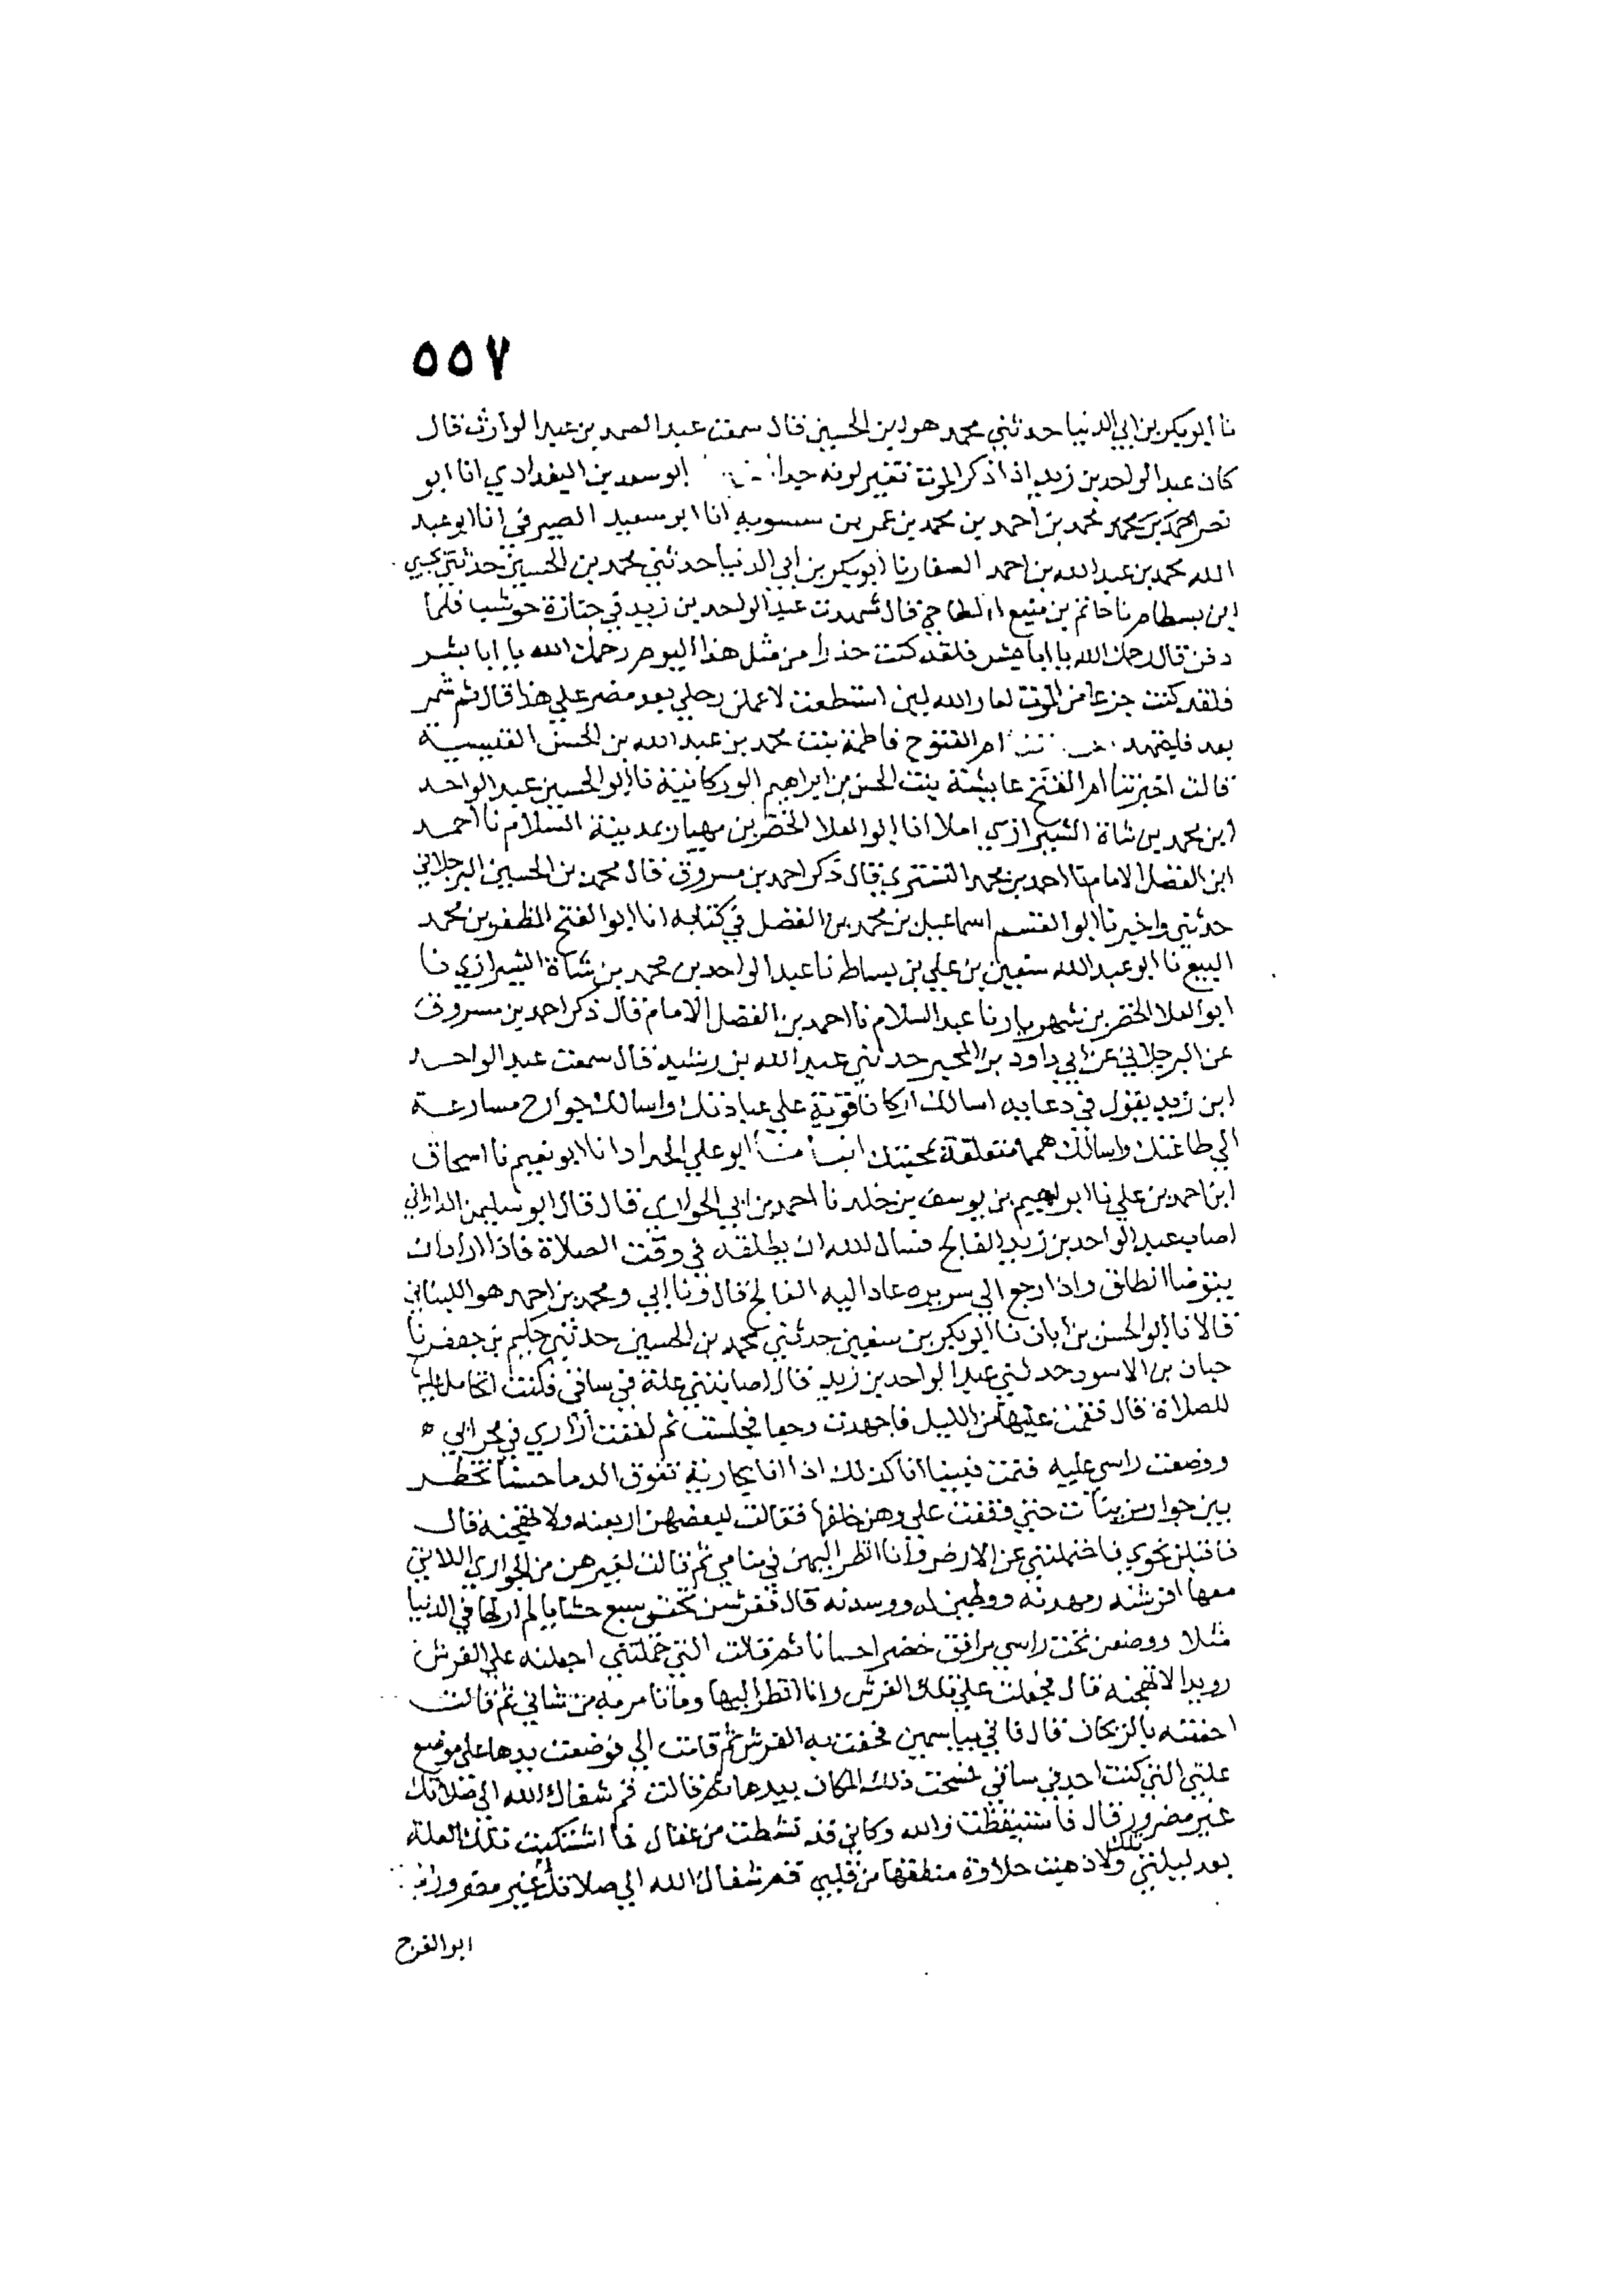 ٥٥٧
نا ابو بكر بن ابي الدنيا حدثني محمد هو بن الحسين قال سمعت عبد الصمد بن عبد الوارث قال
كان عبد الواحد بن زيد اذا ذكر الموت تغير لونه جدا ابو سعد بن البغدادي انا ابو
نصر محمد بن احمد بن محمد بن عمر بن سسويه انا ابو سعيد الصيرفي انا ابو عبد
الله محمد بن عبد الله بن احمد الصفار نا ابو بكر بن ابي الدنيا حدثني محمد بن الحسين حدثني يحيى
ابن بسطام نا حاتم بن منيع الطاحي قال شهدت عبد الواحد بن زيد في جنازة حوشب فلما
دفن قال رحمك الله يا ابا بشر فلقد كنت حذرا من مثل هذا اليوم رحمك الله يا ابا بشر
فلقد كنت جزعا من الموت اما والله لين استطعت لاعملن رحلي بعد مصرعي هذا قال ثم شمر
بعد فاجتهد ام الفتوح فاطمة بنت محمد بن عبد الله بن الحسن القيسية
قالت اخبرتنا ام الفتح عايشة بنت الحسن بن ابراهيم الوركانية نا ابو الحسين عبد الواحد
ابن محمد بن شاة الشيرازي املا انا ابو العلا الخضر بن مهيار بمدينة السلام نا احمد
ابن الفضل الامام نا احمد بن محمد التستري قال ذكر احمد بن مسروق قال محمد بن الحسين البرجلاني
حدثني واخبرنا ابو القسم اسماعيل بن محمد بن الفضل في كتابه انا ابو الفتح المظفر بن محمد
البيع نا ابو عبد الله سفين بن علي بن بساط نا عبد الواحد بن محمد بن شاة الشيرازي نا
ابو العلا الخضر بن شهريار نا عبد السلام نا احمد بن الفضل الامام قال ذكر احمد بن مسروق
عن البرجلاني عن ابي داود بن المحبر حدثني عبد الله بن رشيد قال سمعت عبد الواحد
ابن زيد يقول في دعايه اسالك اركانا قوية على عبادتك واسالك جوارح مسارعة
الى طاعتك واسالك همما متعلقة بمحبتك انبانا ابو علي الحداد انا ابو نعيم نا اسحاق
ابن احمد بن علي نا ابرهيم بن يوسف بن خلد نا احمد بن ابي الحواري قال قال ابو سليمن الداراني
اصاب عبد الواحد بن زيد الفالج فسال الله ان يطلقه في وقت الصلاة فاذا اراد ان
يتوضا انطلق واذا رجع الى سريره عاد اليه الفالج قال ونا ابي ومحمد بن احمد هو اللبناني
قالا نا ابو الحسن بن ابان نا ابو بكر بن سفين حدثني محمد بن الحسين حدثني حكيم بن جعفر نا
حبان بن الاسود حدثني عبد الواحد بن زيد قال اصابتني علة في ساقي فكنت اتحامل عليها
للصلاة قال فقمت عليها من الليل فاجهدت وجعا فجلست ثم لففت ازاري في محرابي ه
ووضعت راسي عليه فنمت فبينا انا كذلك اذا انا بجارية تفوق الدما حسنا تخطر
بين جوار مزينات حتى وقفت علي وهن خلفها فقالت لبعضهن ارفعنه ولا تهجنه قال
فاقبلن نحوي فاحتملنني عن الارض وانا انظر اليهن في منامي ثم قالت لغيرهن من الجواري اللاتي
معها افرشنه ومهدنه ووطين له ووسدنه قال ففرشن تحتي سبع حشايا لم ار لها في الدنيا
مثلا ووضعن تحت راسي مرافق خضر احسانا ثم قالت التي حملتني اجعلنه على الفرش
رويدا لا تهجنه قال فجعلت على تلك الفرش وانا انظر اليها وما تامر به من شاني ثم قالت
احففنه بالريحان قال فاتي بياسمين فحفت به الفرش ثم قامت الي فوضعت يدها على موضع
علتي التي كنت اجد في ساقي فمسحت ذلك المكان بيدها ثم قالت قم شفاك الله الى صلاتك
غير مضرور قال فاستيقظت والله وكاني قد نشطت من عقال فما اشتكيت تلك العلة
بعد ليلتي تلك ولا ذهبت حلاوة منطقها من قلبي قم شفاك الله الى صلاتك غير مضرور
ابو الفرج